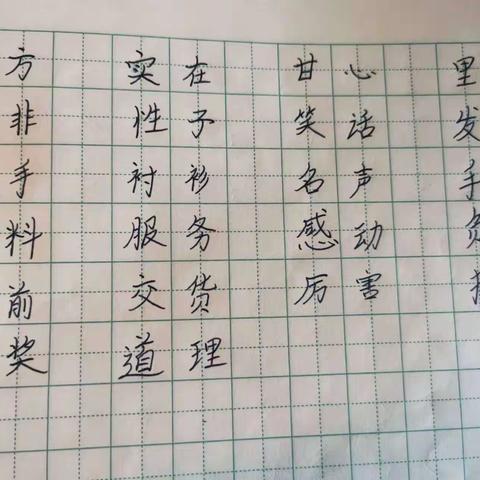 方 实在 甘心 里
非 性子 笑话 发
手 衬衫 名声 手
料 服务 感动 负
前 交货 厉害
奖 道理